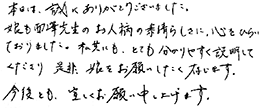 本日は、誠にありがとうございました。
娘も西澤先生のお人柄の素晴らしさに、心をひらい
ておりました。私共にも、とても分かりやすく説明して
くださり 是非、娘をお願いしたく存じます。
今後とも、宜しくお願い申し上げます。